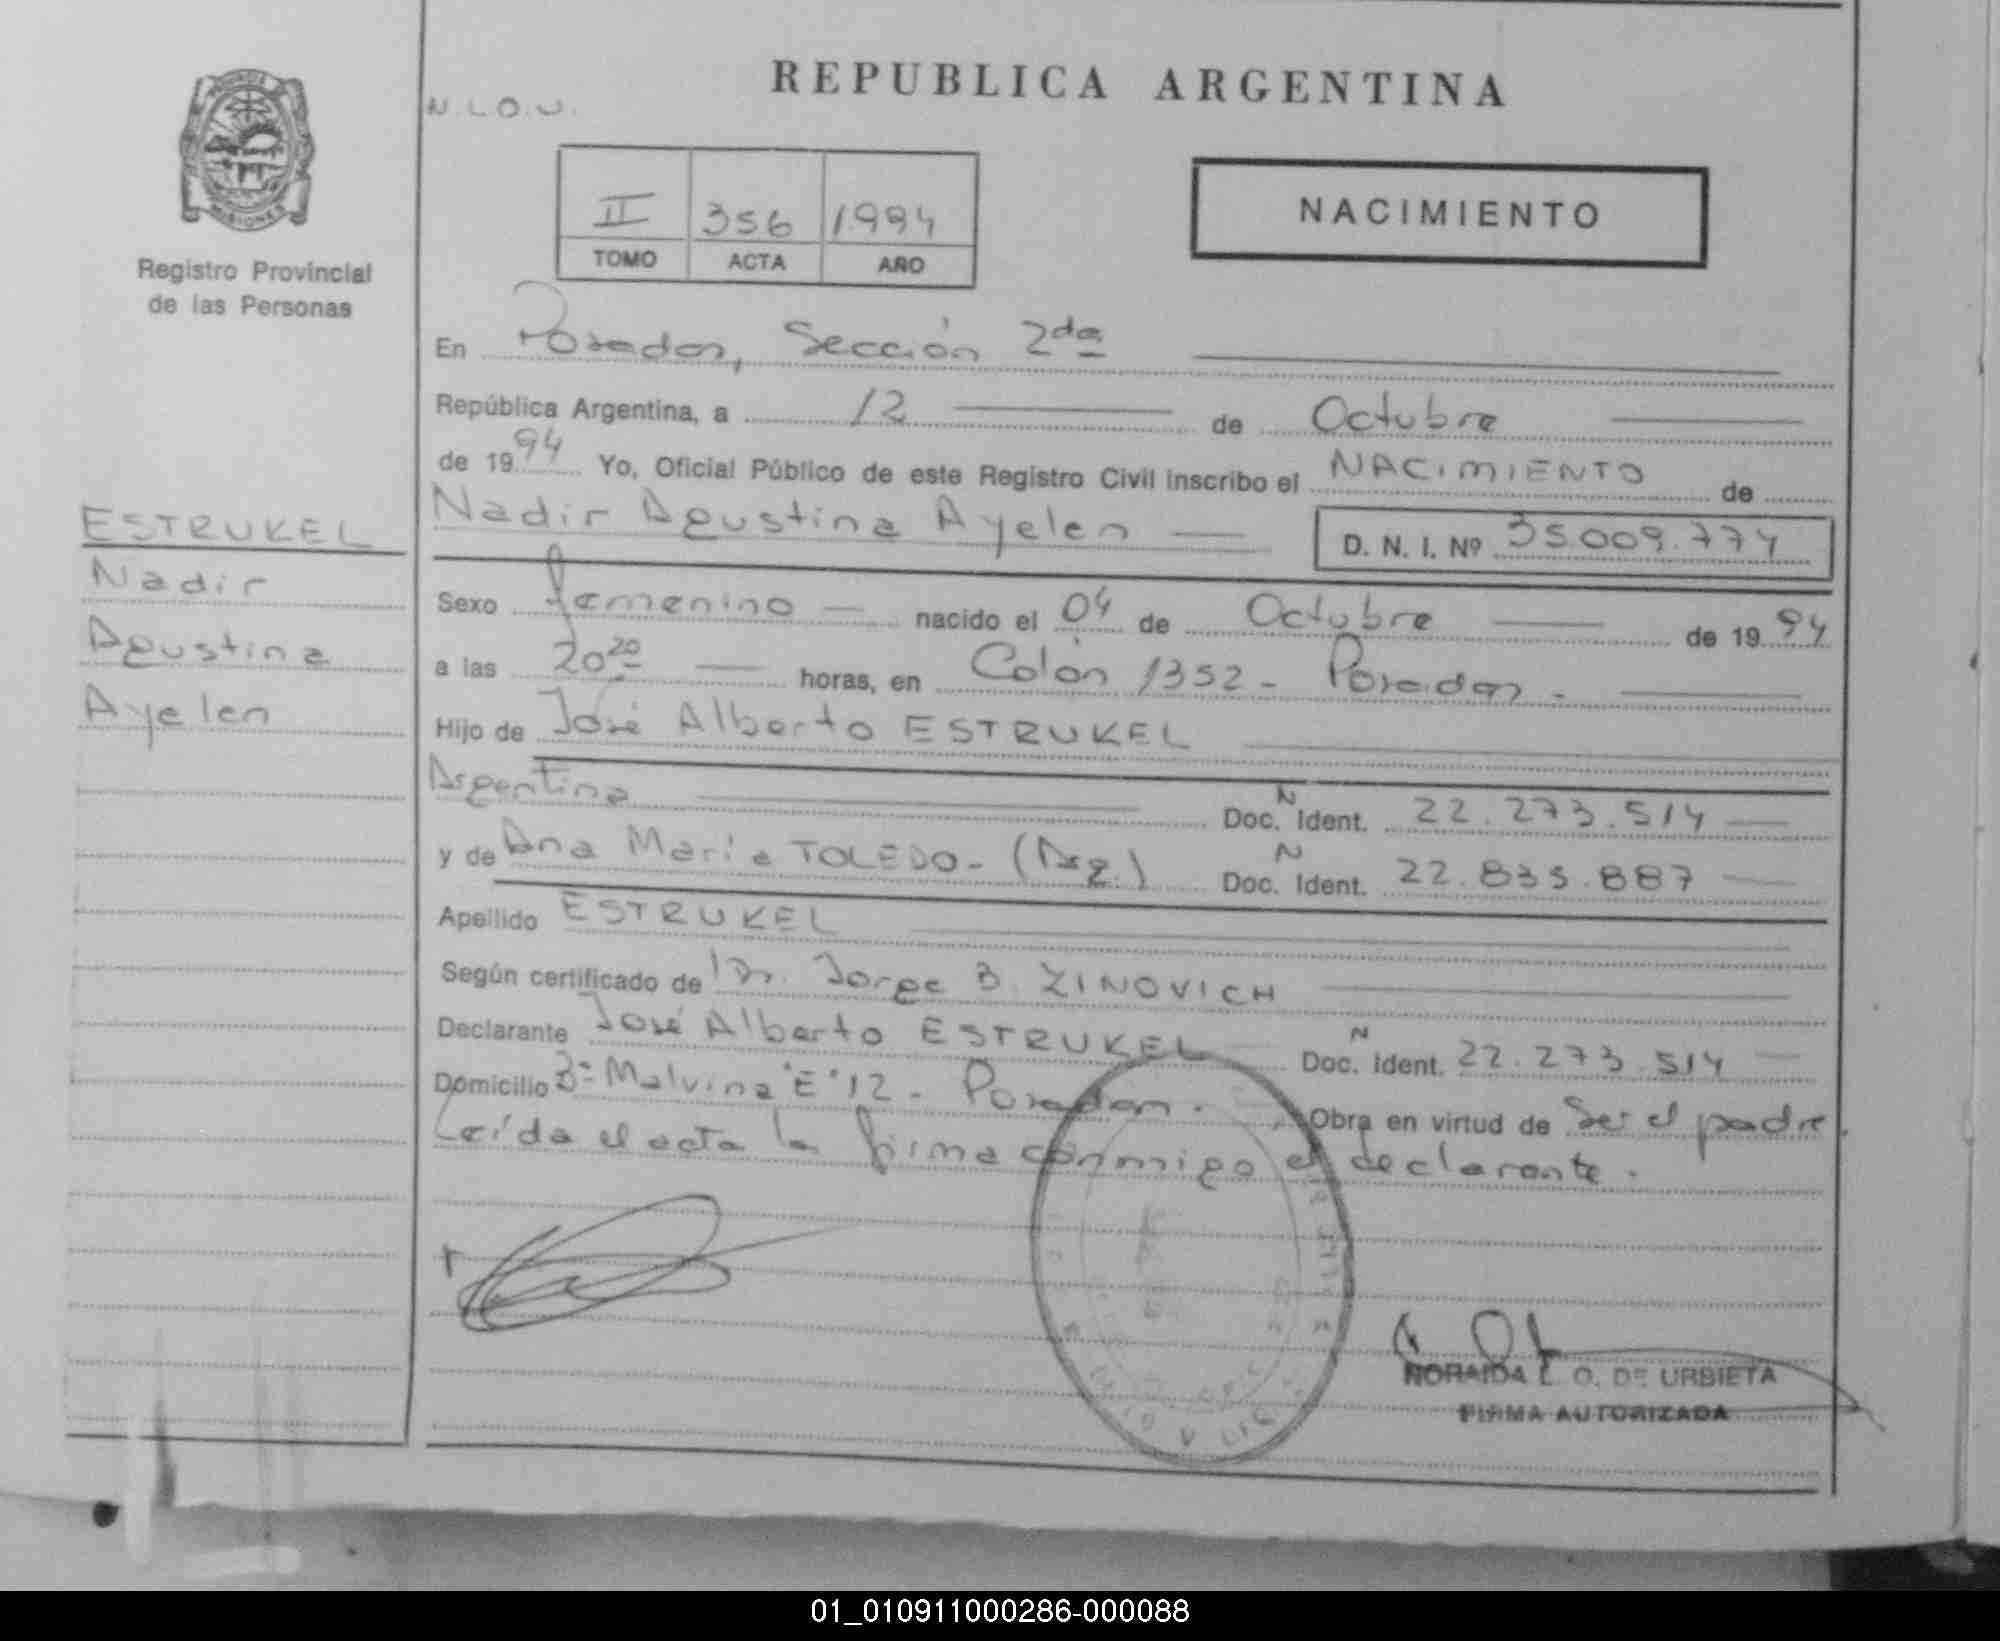 REPUBLICA ARGENTINA
N.L.O.U.
NACIMIENTO
II 356 1994
TOMO ACTA AÑO
MISIONES
Registro Provincial
de las Personas
En Posadas, Sección 2da
República Argentina, a 12 de Octubre
de 1994 Yo, Oficial Público de este Registro Civil inscribo el NACIMIENTO de
Nadir Agustina Ayelen D. N. I. Nº 35.009.774
ESTRUKEL
Nadir
Agustina
Ayelen
Sexo femenino nacido el 04 de Octubre de 1994
a las 20 20 horas, en Colón 1352 - Posadas -
Hijo de José Alberto ESTRUKEL
Argentina Doc. N Ident. 22.273.514
y de Ana María TOLEDO - (Arg.) Doc. N Ident. 22.835.887
Apellido ESTRUKEL
Según certificado de Dr. Jorge B. ZINOVICH
Declarante José Alberto ESTRUKEL Doc. N Ident. 22.273.514
Domicilio Bº Malvina "E" 12 - Posadas - Obra en virtud de Ser el padre.
Leída el acta la firma conmigo el declarante.
NORAIDA L. O. DE URBIETA
FIRMA AUTORIZADA
01_010911000286-000088